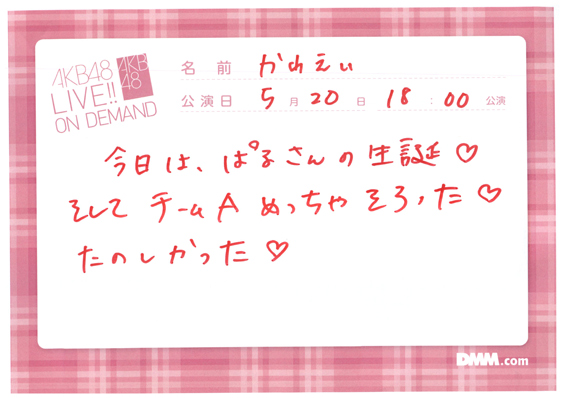 AKB48
LIVE!!
ON DEMAND
AKB
48
名前 かれえぃ
公演日 5月20日 18:00公演
今日は、ぱるさんの生誕♡
そして チームA めっちゃそろった♡
たのしかった♡
DMM.com